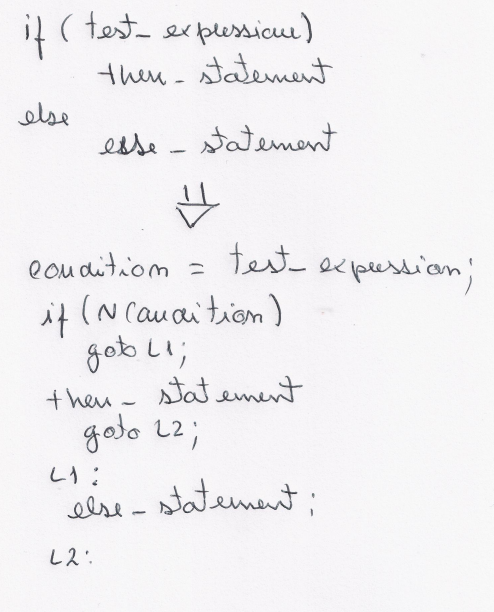 if (test_expression)
then_statement
else
else_statement
condition = test_expression;
if (~condition)
goto L1;
then_statement
goto L2;
L1:
else_statement;
L2: